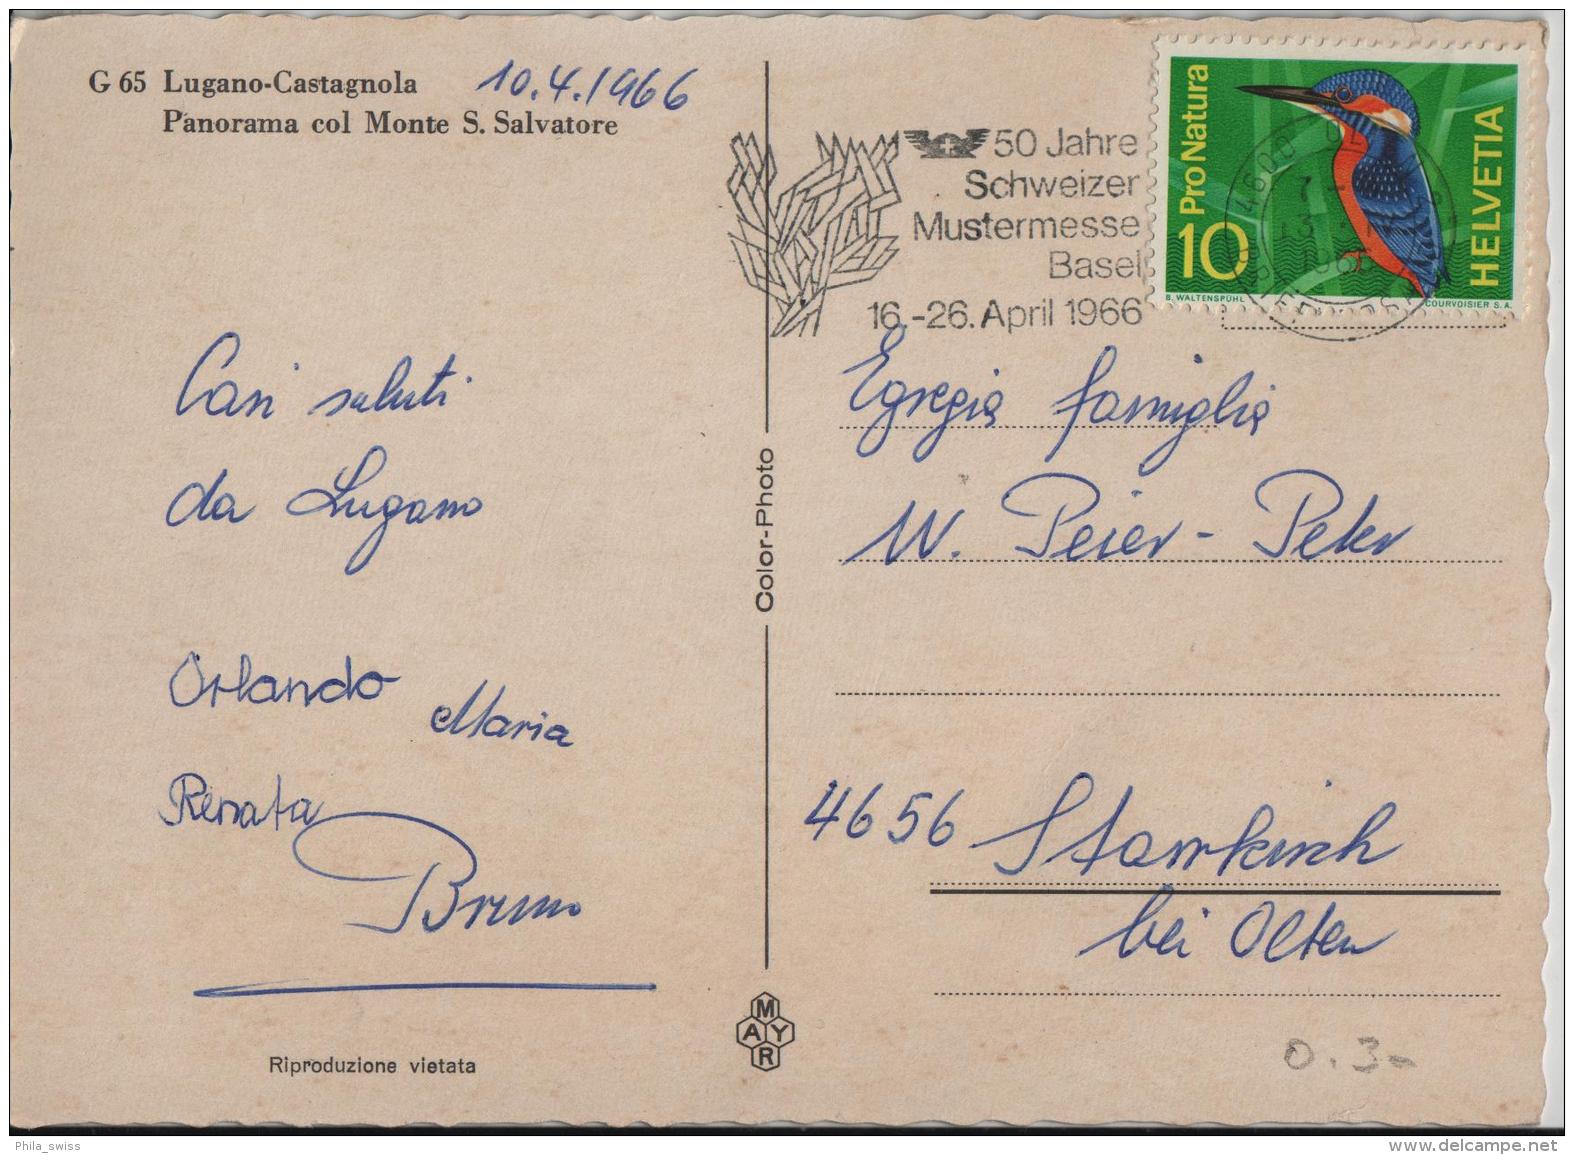 G 65 Lugano-Castagnola
Panorama col Monte S. Salvatore
10.4.1966
Cari saluti
da Lugano
Orlando
Maria
Renata
Bruno
Riproduzione vietata
Color-Photo
MAYR
50 Jahre
Schweizer
Mustermesse
Basel
16.-26. April 1966
Pro Natura
10
HELVETIA
B. WALTENSPÜHL
COURVOISIER S.A.
4600
Egregia famiglia
W. Peier - Peter
4656 Starrkirch
bei Olten
0.3-
Phila_swiss
www.delcampe.net